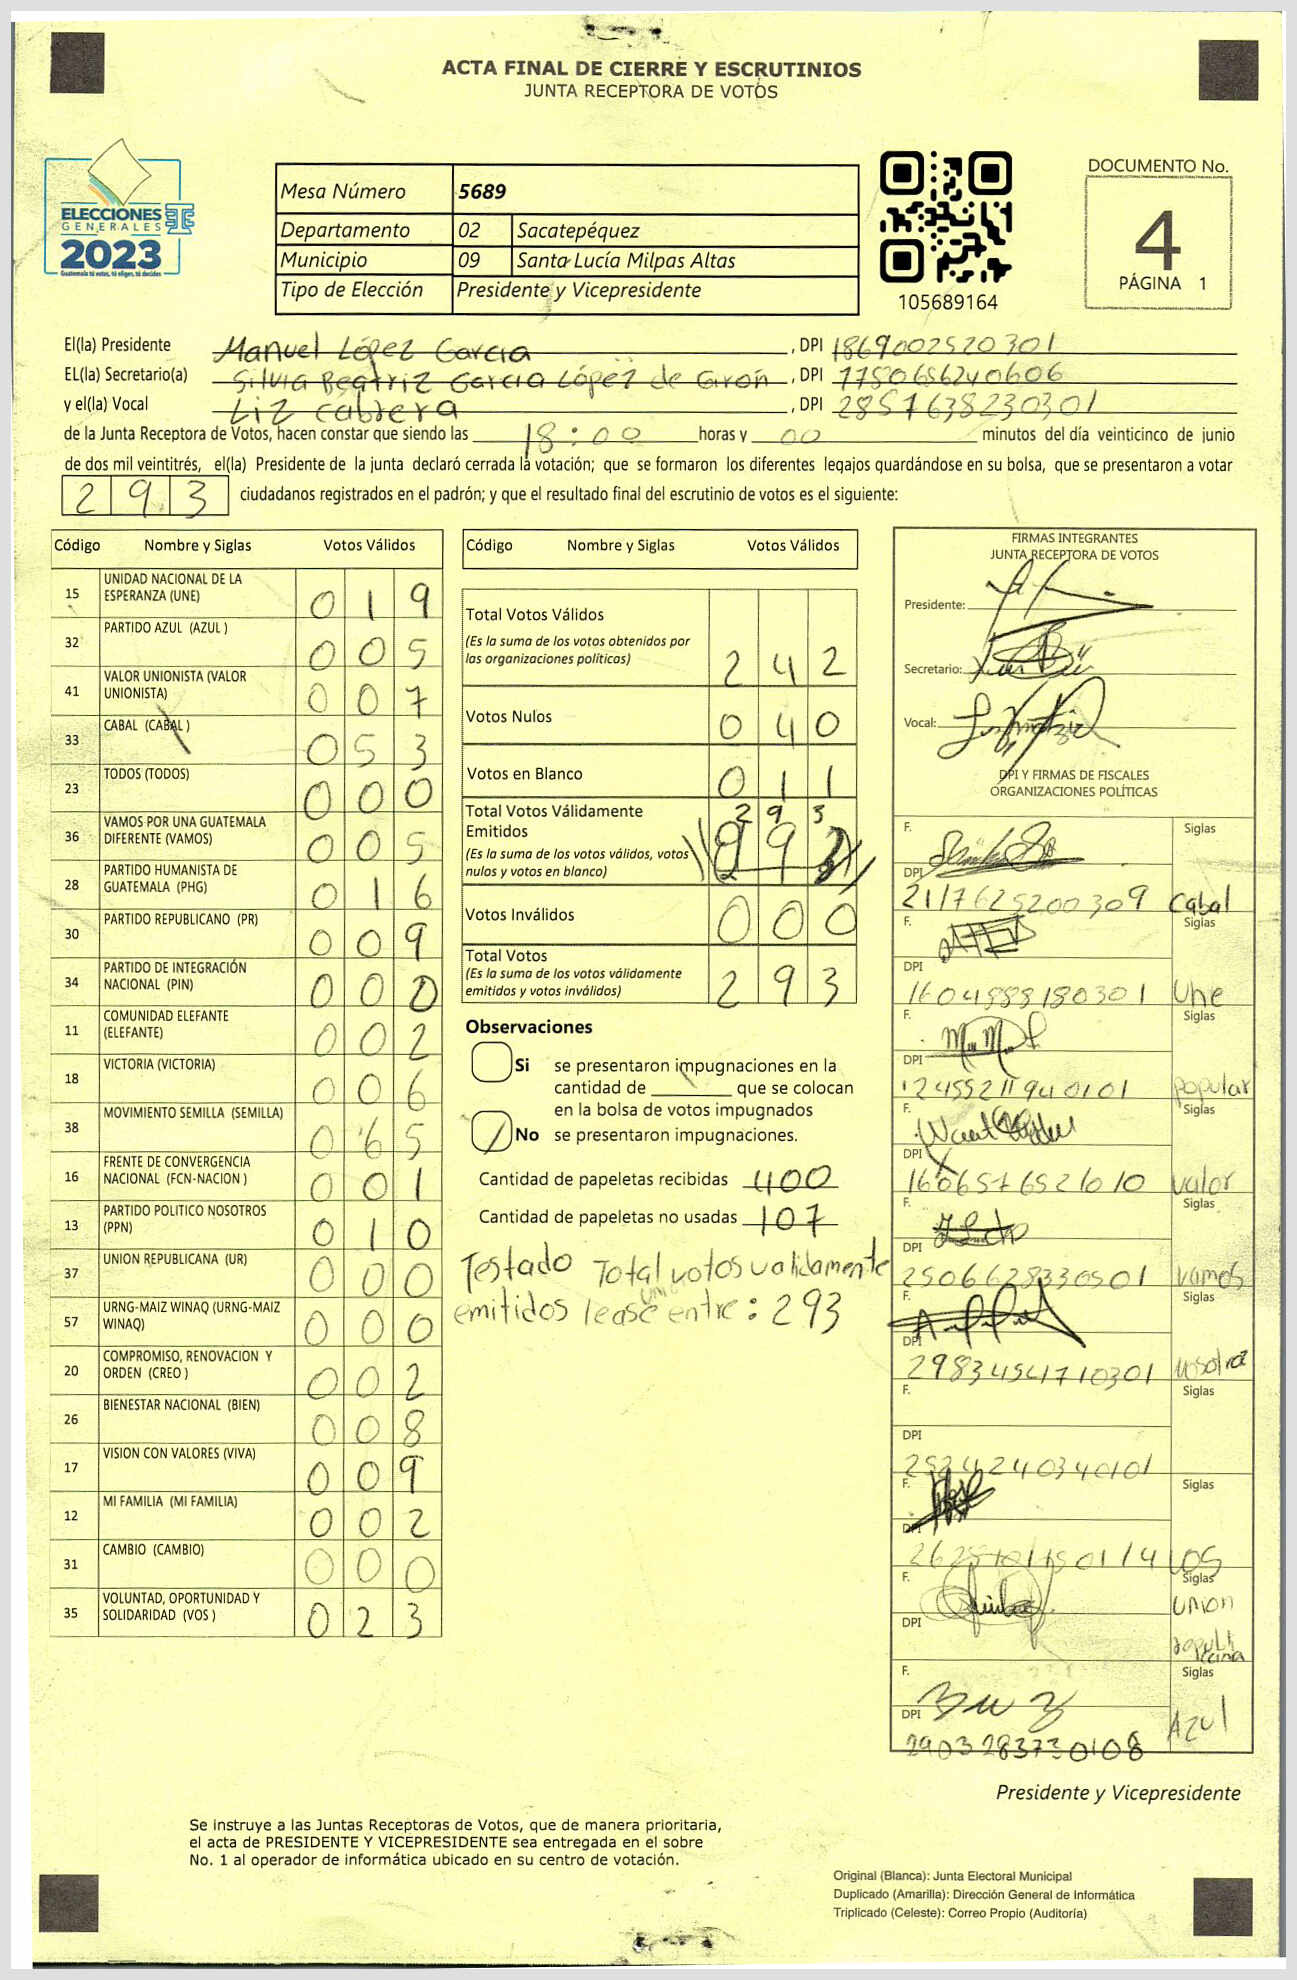 ACTA FINAL DE CIERRE Y ESCRUTINIOS
JUNTA RECEPTORA DE VOTOS
ELECCIONES
GENERALES
2023
Guatemala tú votas, tú eliges, tú decides
Mesa Número 5689
Departamento 02 Sacatepéquez
Municipio 09 Santa Lucía Milpas Altas
Tipo de Elección Presidente y Vicepresidente
105689164
DOCUMENTO No.
4
PÁGINA 1
El(la) Presidente Manuel López Garcia, DPI 1869002520301
EL(la) Secretario(a) Silvia Beatriz Garcia López de Girón, DPI 7750656240606
y el(la) Vocal Liz Cabrera, DPI 2857638230301
de la Junta Receptora de Votos, hacen constar que siendo las 18:00 horas y 00 minutos del día veinticinco de junio
de dos mil veintitrés, el(la) Presidente de la junta declaró cerrada la votación; que se formaron los diferentes legajos quardándose en su bolsa, que se presentaron a votar
293 ciudadanos registrados en el padrón; y que el resultado final del escrutinio de votos es el siguiente:
Código Nombre y Siglas Votos Válidos
15 UNIDAD NACIONAL DE LA ESPERANZA (UNE) 019
32 PARTIDO AZUL (AZUL ) 005
41 VALOR UNIONISTA (VALOR UNIONISTA) 007
33 CABAL (CABAL ) 053
23 TODOS (TODOS) 000
36 VAMOS POR UNA GUATEMALA DIFERENTE (VAMOS) 005
28 PARTIDO HUMANISTA DE GUATEMALA (PHG) 016
30 PARTIDO REPUBLICANO (PR) 009
34 PARTIDO DE INTEGRACIÓN NACIONAL (PIN) 000
11 COMUNIDAD ELEFANTE (ELEFANTE) 002
18 VICTORIA (VICTORIA) 006
38 MOVIMIENTO SEMILLA (SEMILLA) 065
16 FRENTE DE CONVERGENCIA NACIONAL (FCN-NACION ) 001
13 PARTIDO POLITICO NOSOTROS (PPN) 010
37 UNION REPUBLICANA (UR) 000
57 URNG-MAIZ WINAQ (URNG-MAIZ WINAQ) 000
20 COMPROMISO, RENOVACION Y ORDEN (CREO ) 002
26 BIENESTAR NACIONAL (BIEN) 008
17 VISION CON VALORES (VIVA) 009
12 MI FAMILIA (MI FAMILIA) 002
31 CAMBIO (CAMBIO) 000
35 VOLUNTAD, OPORTUNIDAD Y SOLIDARIDAD (VOS ) 023
Código Nombre y Siglas Votos Válidos
Total Votos Válidos
(Es la suma de los votos obtenidos por
las organizaciones políticas) 242
Votos Nulos 040
Votos en Blanco 011
Total Votos Válidamente 293
Emitidos
(Es la suma de los votos válidos, votos
nulos y votos en blanco)
Votos Inválidos 000
Total Votos
(Es la suma de los votos válidamente
emitidos y votos inválidos) 293
Observaciones
Si se presentaron impugnaciones en la
cantidad de ______ que se colocan
en la bolsa de votos impugnados
No se presentaron impugnaciones.
Cantidad de papeletas recibidas 400
Cantidad de papeletas no usadas 107
Testado Total votos validamente
emitidos lease entre: 293
FIRMAS INTEGRANTES
JUNTA RECEPTORA DE VOTOS
Presidente:
Secretario:
Vocal:
DPI Y FIRMAS DE FISCALES
ORGANIZACIONES POLÍTICAS
F. Siglas
DPI
2117625200309 Cabal
F. Siglas
DPI
1604888180301 Une
F. Siglas
DPI
popular
F. Siglas
DPI
valor
F. Siglas
DPI
2506628330501 vamos
F. Siglas
DPI
F. Siglas
DPI
2524240340101
F. Siglas
DPI
F. Siglas
DPI
union
F. Siglas
DPI
Azul
Presidente y Vicepresidente
Se instruye a las Juntas Receptoras de Votos, que de manera prioritaria,
el acta de PRESIDENTE Y VICEPRESIDENTE sea entregada en el sobre
No. 1 al operador de informática ubicado en su centro de votación.
Original (Blanca): Junta Electoral Municipal
Duplicado (Amarilla): Dirección General de Informática
Triplicado (Celeste): Correo Propio (Auditoría)